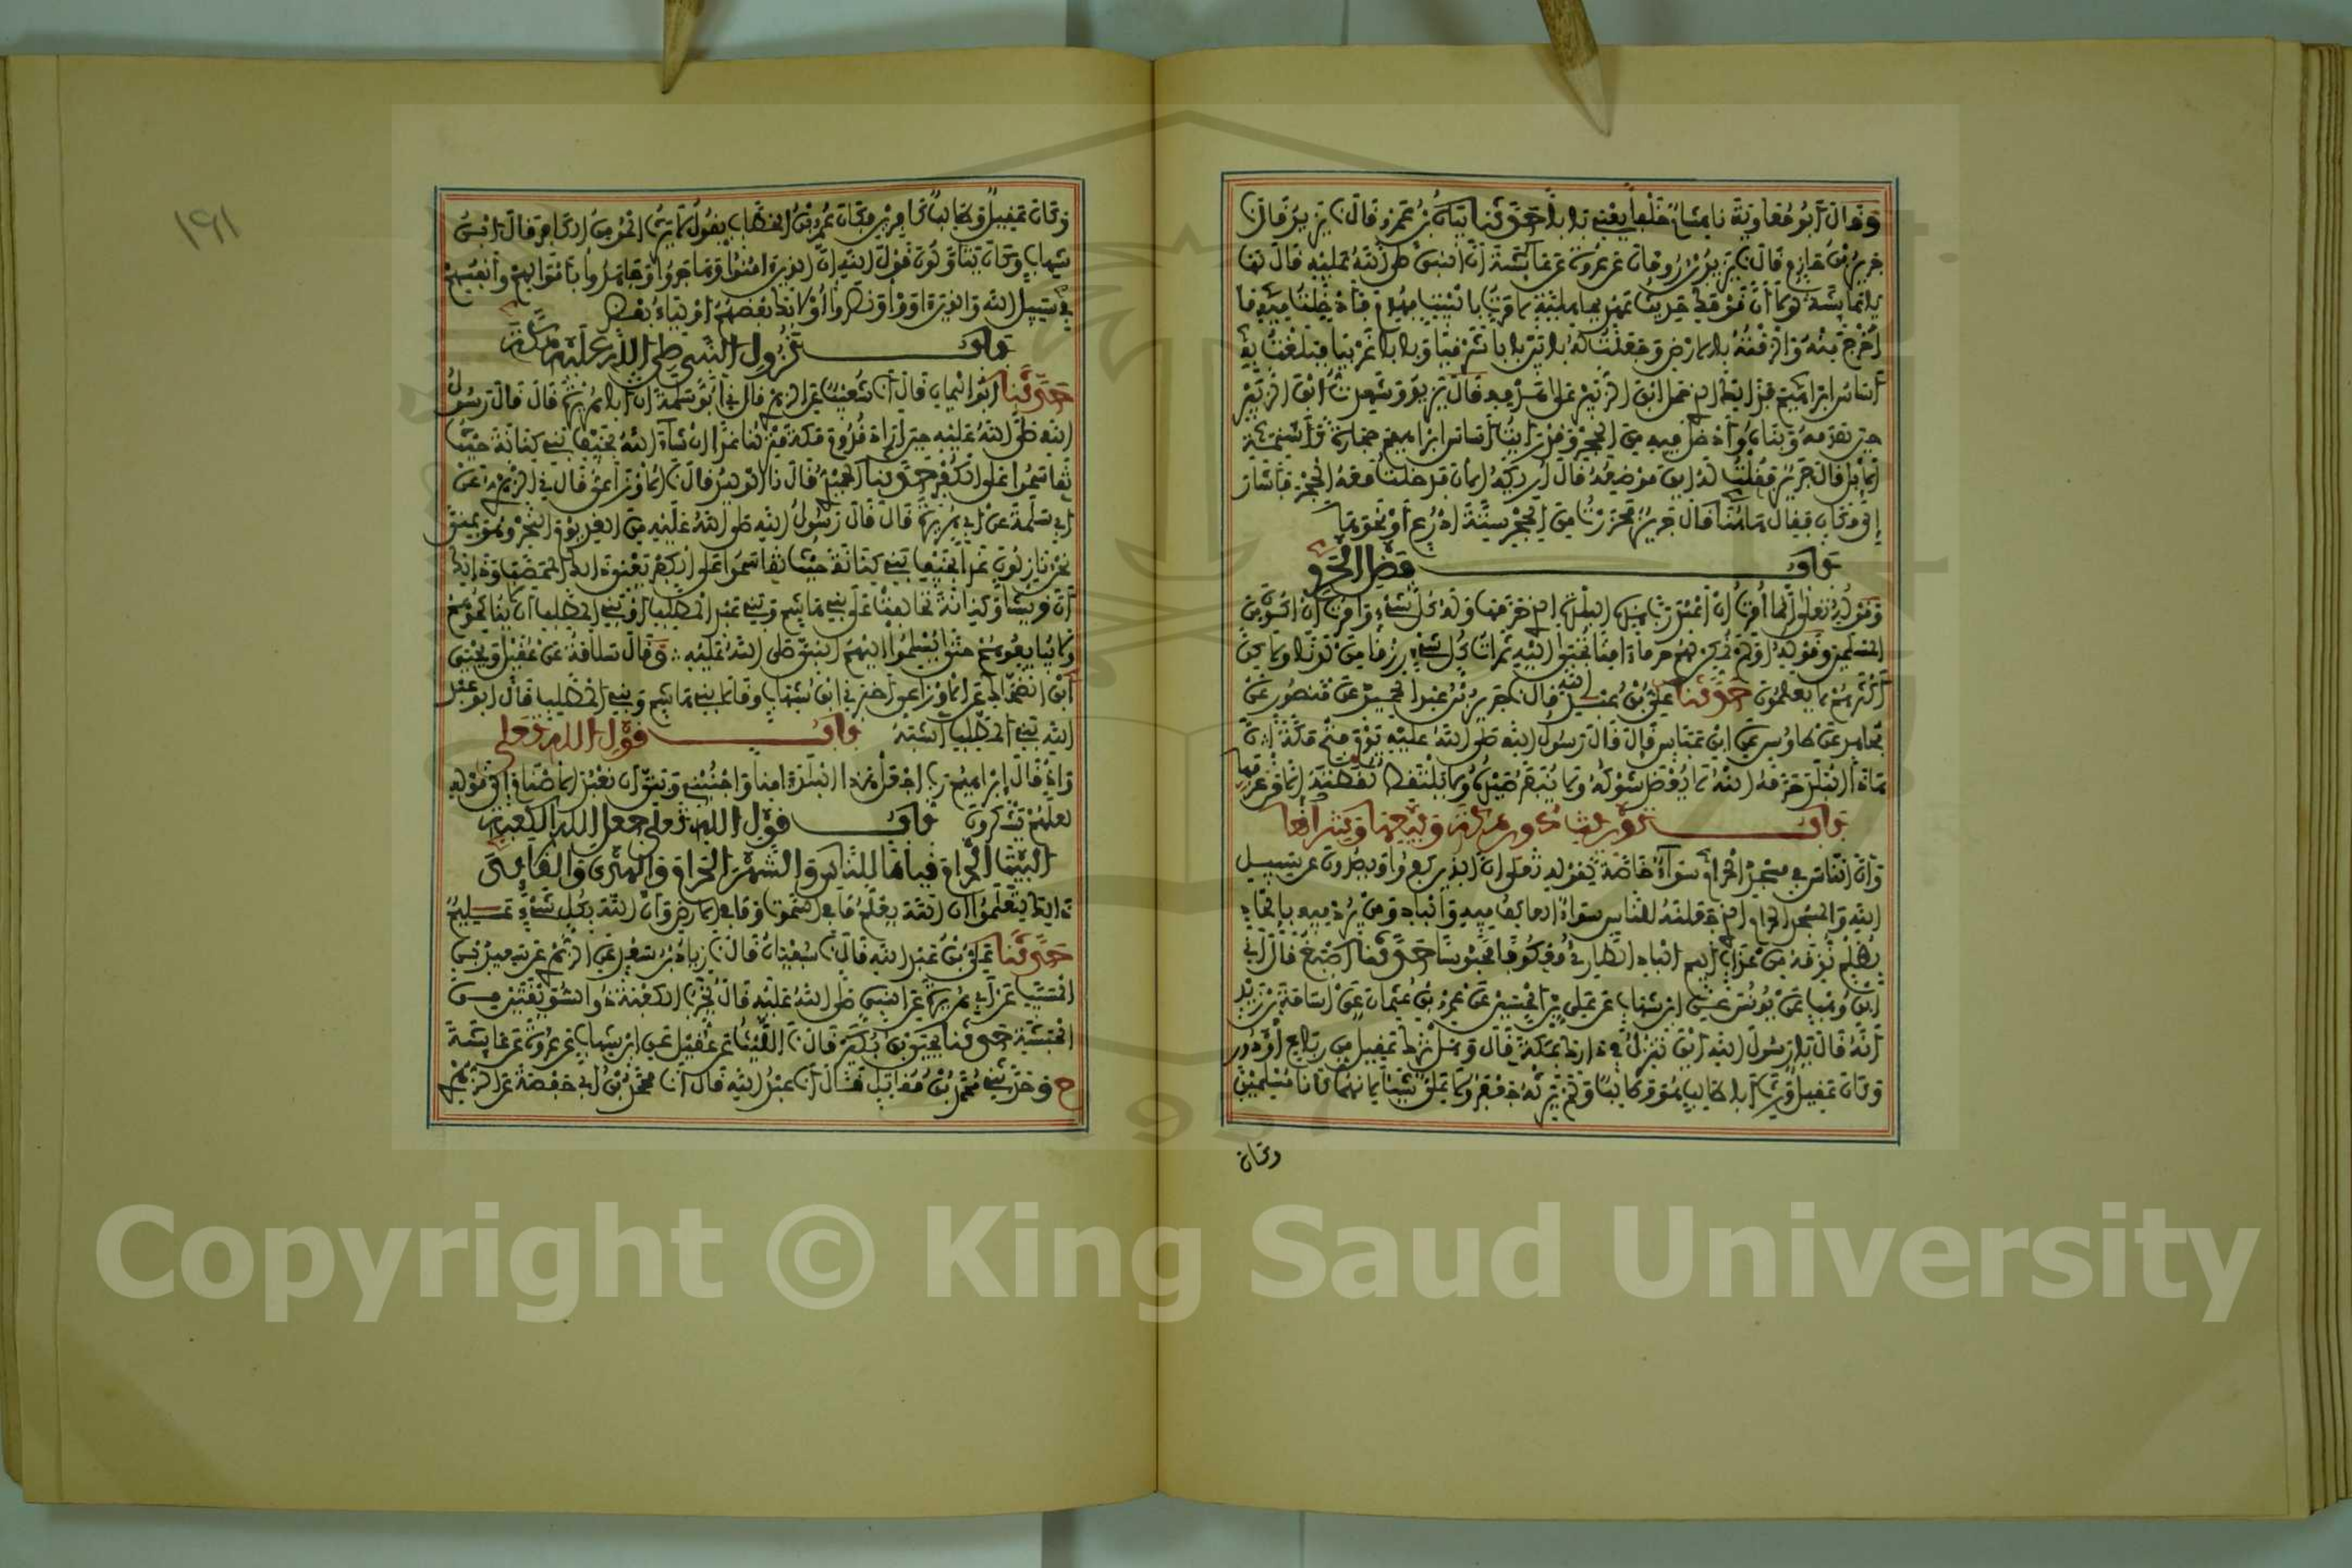 وقال أبو معاوية نا هشام خلفا يعني بابا حدثنا بيان بن عمرو قال نا يزيد قال نا
جرير بن حازم قال نا يزيد بن رومان عن عروة عن عائشة أن النبي صلى الله عليه قال لها
يا عائشة لولا أن قومك حديث عهد بجاهلية لأمرت بالبيت فهدم فأدخلت فيه ما
أخرج منه وألزقته بالأرض وجعلت له بابين بابا شرقيا وبابا غربيا فبلغت به
أساس إبراهيم فذلك الذي حمل ابن الزبير على هدمه قال يزيد وشهدت ابن الزبير
حين هدمه وبناه وأدخل فيه من الحجر وقد رأيت أساس إبراهيم حجارة كأسنمة
الإبل قال جرير فقلت له أين موضعه قال أريكه الآن فدخلت معه الحجر فأشار
إلى مكان فقال هاهنا قال جرير فحزرت من الحجر ستة أذرع أو نحوها
باب فضل الحرم
وقوله تعلى إنما أمرت أن أعبد رب هذه البلدة الذي حرمها وله كل شيء وأمرت أن أكون من
المسلمين وقوله أولم نمكن لهم حرما آمنا تجبى إليه ثمرات كل شيء رزقا من لدنا ولكن
أكثرهم لا يعلمون حدثنا علي بن عبد الله قال نا جرير بن عبد الحميد عن منصور عن
مجاهد عن طاوس عن ابن عباس قال قال رسول الله صلى الله عليه يوم فتح مكة إن
هاذا البلد حرمه الله لا يعضد شوكه ولا ينفر صيده ولا يلتقط لقطته إلا من عرفها
باب توريث دور مكة وبيعها وشرائها
وأن الناس في مسجد الحرام سواء خاصة لقوله تعلى إن الذين كفروا ويصدون عن سبيل
الله والمسجد الحرام الذي جعلناه للناس سواء العاكف فيه والباد ومن يرد فيه بإلحاد
بظلم نذقه من عذاب أليم الباد الطاري معكوفا محبوسا حدثنا أصبغ قال أني
ابن وهب عن يونس عن ابن شهاب عن علي بن الحسين عن عمرو بن عثمان عن أسامة بن زيد
أنه قال يا رسول الله أين تنزل في دارك بمكة قال وهل ترك عقيل من رباع أو دور
وكان عقيل ورث أبا طالب هو وطالب ولم يرثه جعفر ولا علي شيئا لأنهما كانا مسلمين
وكان
١٩١
وكان عقيل وطالب كافرين فكان عمر بن الخطاب يقول لا يرث المؤمن الكافر قال ابن
شهاب وكانوا يتأولون قول الله إن الذين آمنوا وهاجروا وجاهدوا بأموالهم وأنفسهم
في سبيل الله والذين آووا ونصروا أولائك بعضهم أولياء بعض
باب نزول النبي صلى الله عليه مكة
حدثنا أبو اليمان قال أنا شعيب عن الزهري قال ني أبو سلمة أن أبا هريرة قال قال رسول
الله صلى الله عليه حين أراد قدوم مكة منزلنا غدا إن شاء الله بخيف بني كنانة حيث
تقاسموا على الكفر حدثنا الحميدي قال نا الوليد قال نا الأوزاعي قال ني الزهري عن
أبي سلمة عن أبي هريرة قال قال رسول الله صلى الله عليه من الغد يوم النحر وهو بمنى
نحن نازلون غدا بخيف بني كنانة حيث تقاسموا على الكفر يعني ذلك المحصب وذلك
أن قريشا وكنانة تحالفت على بني هاشم وبني عبد المطلب أو بني المطلب أن لا يناكحوهم
ولا يبايعوهم حتى يسلموا إليهم النبي صلى الله عليه وقال سلامة عن عقيل ويحيى
ابن الضحاك عن الأوزاعي أخبرني ابن شهاب وقالا بني هاشم وبني المطلب قال أبو عبد
الله بني المطلب أشبه باب قول الله تعلى
وإذ قال إبراهيم رب اجعل هذا البلد آمنا واجنبني وبني أن نعبد الأصنام إلى قوله
لعلهم يشكرون باب قول الله تعلى جعل الله الكعبة
البيت الحرام قياما للناس والشهر الحرام والهدي والقلائد
ذالك لتعلموا أن الله يعلم ما في السموات وما في الأرض وأن الله بكل شيء عليم
حدثنا علي بن عبد الله قال نا سفيان قال نا زياد بن سعد عن الزهري عن سعيد بن
المسيب عن أبي هريرة عن النبي صلى الله عليه قال يخرب الكعبة ذو السويقتين من
الحبشة حدثنا يحيى بن بكير قال نا الليث عن عقيل عن ابن شهاب عن عروة عن عائشة
ح وحدثني محمد بن مقاتل قال أنا عبد الله قال أنا محمد بن أبي حفصة عن الزهري
Copyright © King Saud University